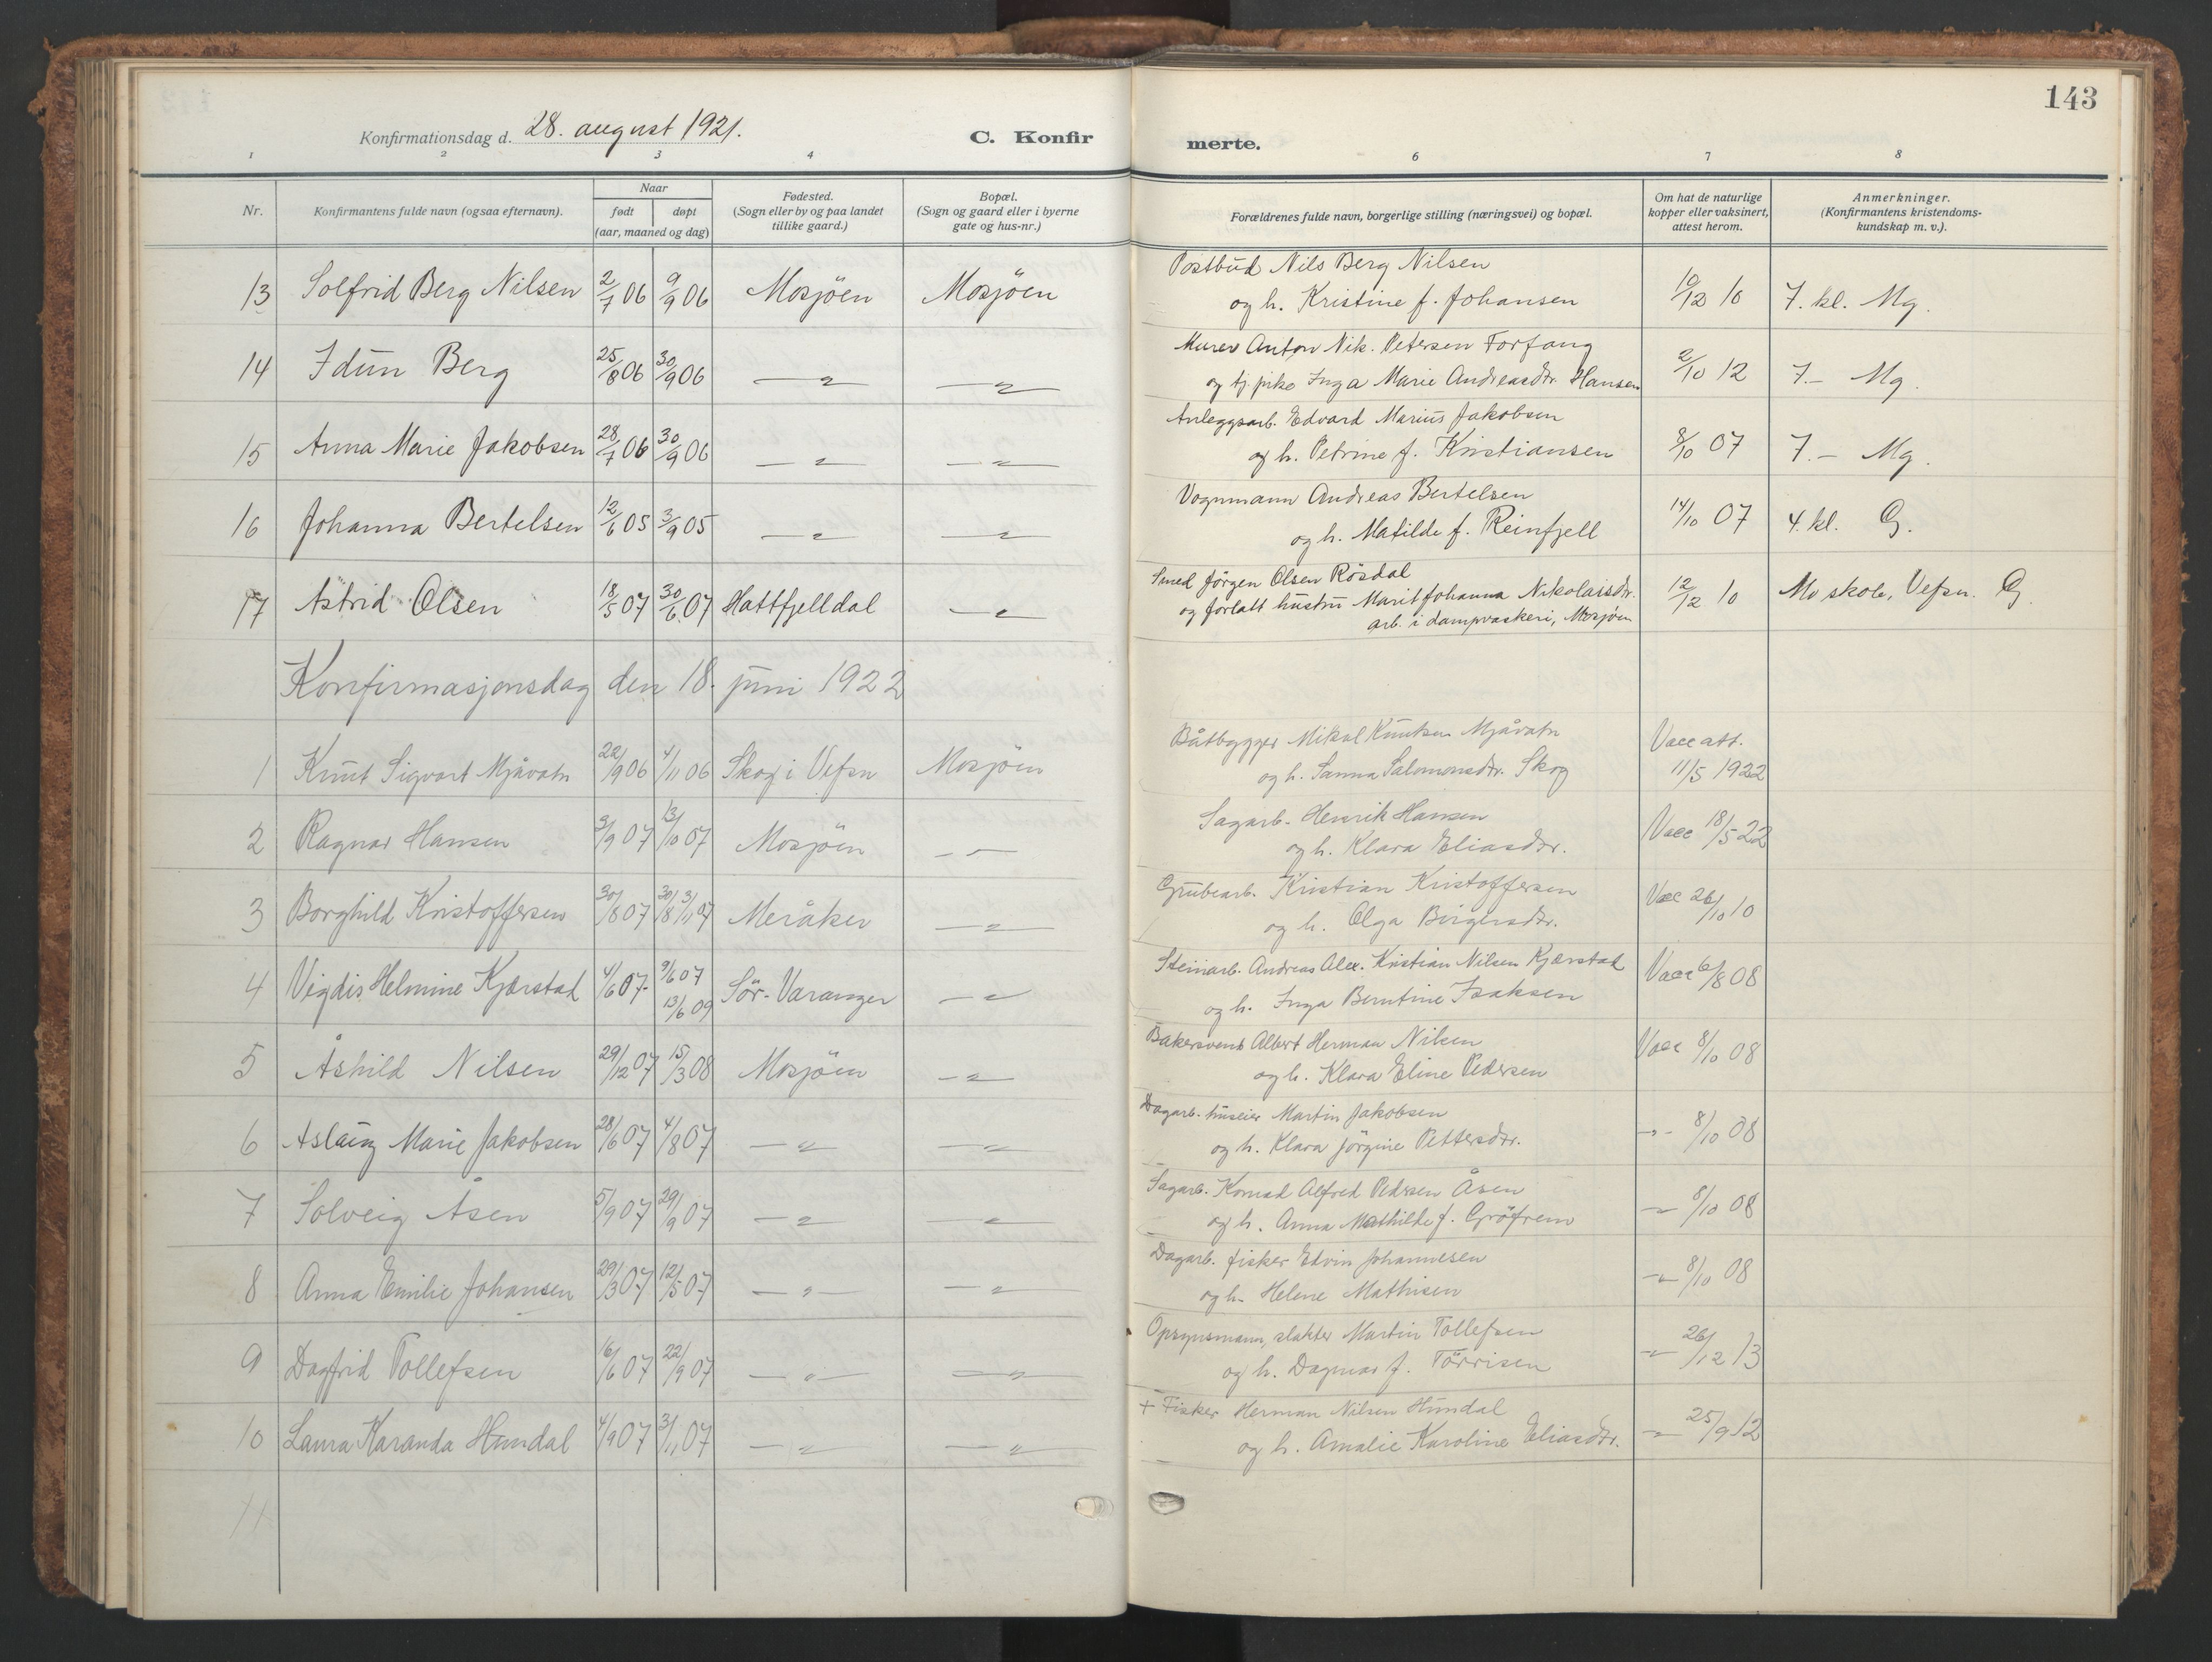 143
Konfirmationsdag d. 28. august 1921. C. Konfir merte.
1 2 3 4 6 7 8
Nr. Konfirmantens fulde navn (ogsaa efternavn). Naar født døpt (aar, maaned og dag) Fødested. (Sogn eller by og paa landet tillike gaard.) Bopæl. (Sogn og gaard eller i byerne gate og hus-nr.) Forældrenes fulde navn, borgerlige stilling (næringsvei) og bopæl. Om hat de naturlige kopper eller vaksinert, attest herom. Anmerkninger. (Konfirmantens kristendoms-kundskap m. v.).
13 Solfrid Berg Nilsen 2/7 06 9/9 06 Mosjöen Mosjöen Postbud Nils Berg Nilsen
og h. Kristine f. Johansen 19/12 10 7. kl. Mg.
14 Idun Berg 25/8 06 30/9 06 — " — — " — Murer Anton Nik. Petersen Forfang
og tj. pike Inga Marie Andreasdtr. Hansen 2/10 12 7.- Mg.
15 Anna Marie Jakobsen 28/7 06 30/9 06 — " — — " — Anleggsarb. Edvard Marius Jakobsen
og h. Petrine f. Kristiansen 8/10 07 7.- Mg.
16 Johanna Bertelsen 12/6 05 3/9 05 — " — — " — Vognmann Andreas Bertelsen
og h. Matilde f. Reinfjell 14/10 07 4. kl. G.
17 Astrid Olsen 18/5 07 30/6 07 Hattfjelldal — " — Smed Jörgen Olsen Rösdal
og forlatt hustru Marit Johanna Nikolaisdtr.
arb. i dampvaskeri, Mosjöen 12/12 10 Mo skole, Vefsn. G
Konfirmasjonsdag den 18. juni 1922
1 Knut Sigvart Mjåvatn 22/9 06 4/11 06 Skog i Vefsn Mosjöen Båtbygger Mikal Knutsen Mjåvatn
og h. Sanna Salomonsdtr. Skog Vacc att. 11/5 1922
2 Ragnar Hansen 3/9 07 13/10 07 Mosjöen — " — Sagarb. Henrik Hansen
og h. Klara Eliasdtr. Vacc 18/5 22
3 Borghild Kristoffersen 30/8 07 30/8 3/11 07 Meråker — " — Grubearb. Kristian Kristoffersen
og h. Olga Birgersdtr. Vac 26/10 10
4 Vigdis Helmine Kjærstad 4/6 07 9/6 07 13/6 09 Sör-Varanger — " — Steinarb. Andreas Alex. Kristian Nilsen Kjærstad
og h. Inga Berntine Isaksen Vacc 6/8 08
5 Åshild Nilsen 29/12 07 15/3 08 Mosjöen — " — Bakersvend Albert Herman Nilsen
og h. Klara Eline Pedersen Vacc 8/10 08
6 Aslaug Marie Jakobsen 28/6 07 4/8 07 — " — — " — Dagarb. huseier Martin Jakobsen
og h. Klara Jörgine Pettersdtr. — " — 8/10 08
7 Solveig Åsen 5/9 07 29/9 07 — " — — " — Sagarb. Konrad Alfred Pedersen Åsen
og h. Anna Mathilde f. Gröfrem — " — 8/10 08
8 Anna Emilie Johansen 29/3 07 12/5 07 — " — — " — Dagarb. fisker Edvin Johannesen
og h. Helene Mathisen — " — 8/10 08
9 Dagfrid Tollefsen 16/6 07 22/9 07 — " — — " — Opsynsmann, slakter Martin Tollefsen
og h. Dagmar f. Törrisen — " — 26/12 13
10 Laura Karanda Hundal 4/9 07 3/11 07 — " — — " — + Fisker Herman Nilsen Hundal
og h. Amalie Karoline Eliasdtr. — " — 25/9 12
11